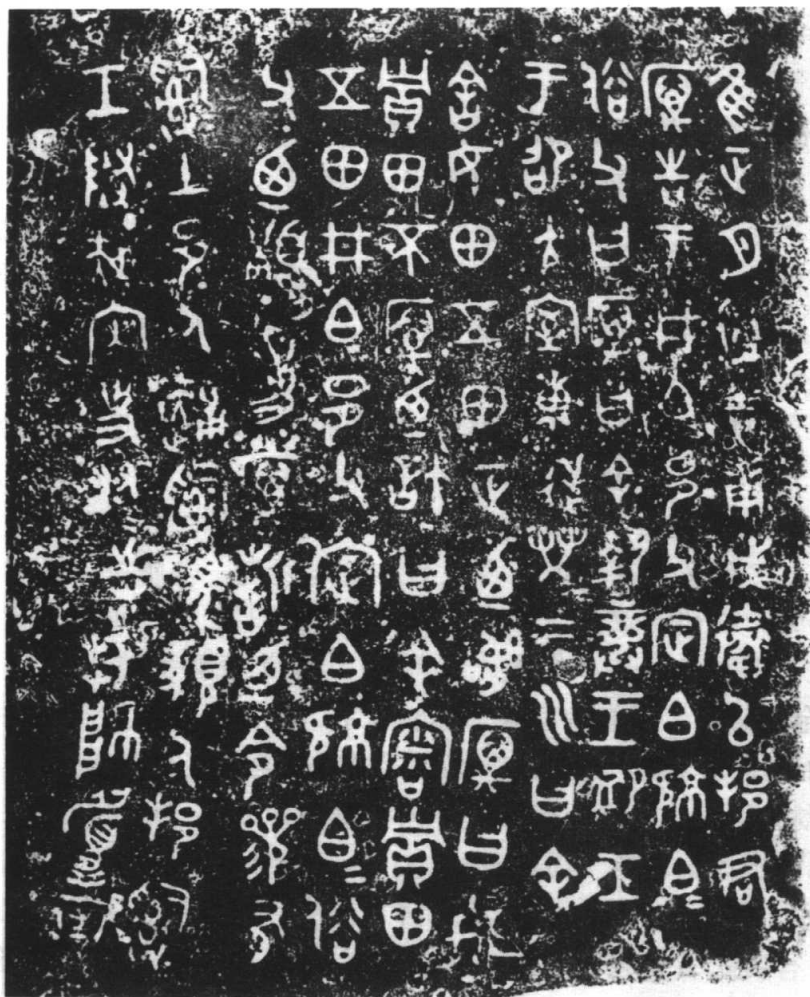 隹正月初吉庚戌衛以邦君
厲告于井白邑父定白𤭯白=
俗父曰厲曰余執龏王卹工
于卲大室東逆𤇾二川曰余
舍女田五田正廼訊厲曰女
貯田不厲廼許曰余審貯田
五田井白邑父定白𤭯白=俗
父廼顜吏厲誓廼令參有
𤔲土邑人𤔲馬頞人邦𤔲
工隓矩內史友寺芻帥履